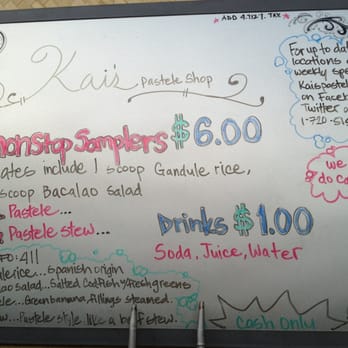 ADD 4.712% TAX
Kai's Pastele Shop
For up to dat
locations &
weekly spe
Kaispastel
on Faceb
Twitter o
1-710-51
NonStop Samplers $6.00
ates include 1 scoop Gandule rice,
scoop Bacalao salad
Pastele...
Pastele stew...
Drinks $1.00
Soda, Juice, Water
we
do Ca
FO: 411
ule rice... Spanish origin
ao salad... Salted Codfish w/fresh greens
ele... Green banana, fillings steamed.
w... Pastele style. like a beef stew.
Cash Only